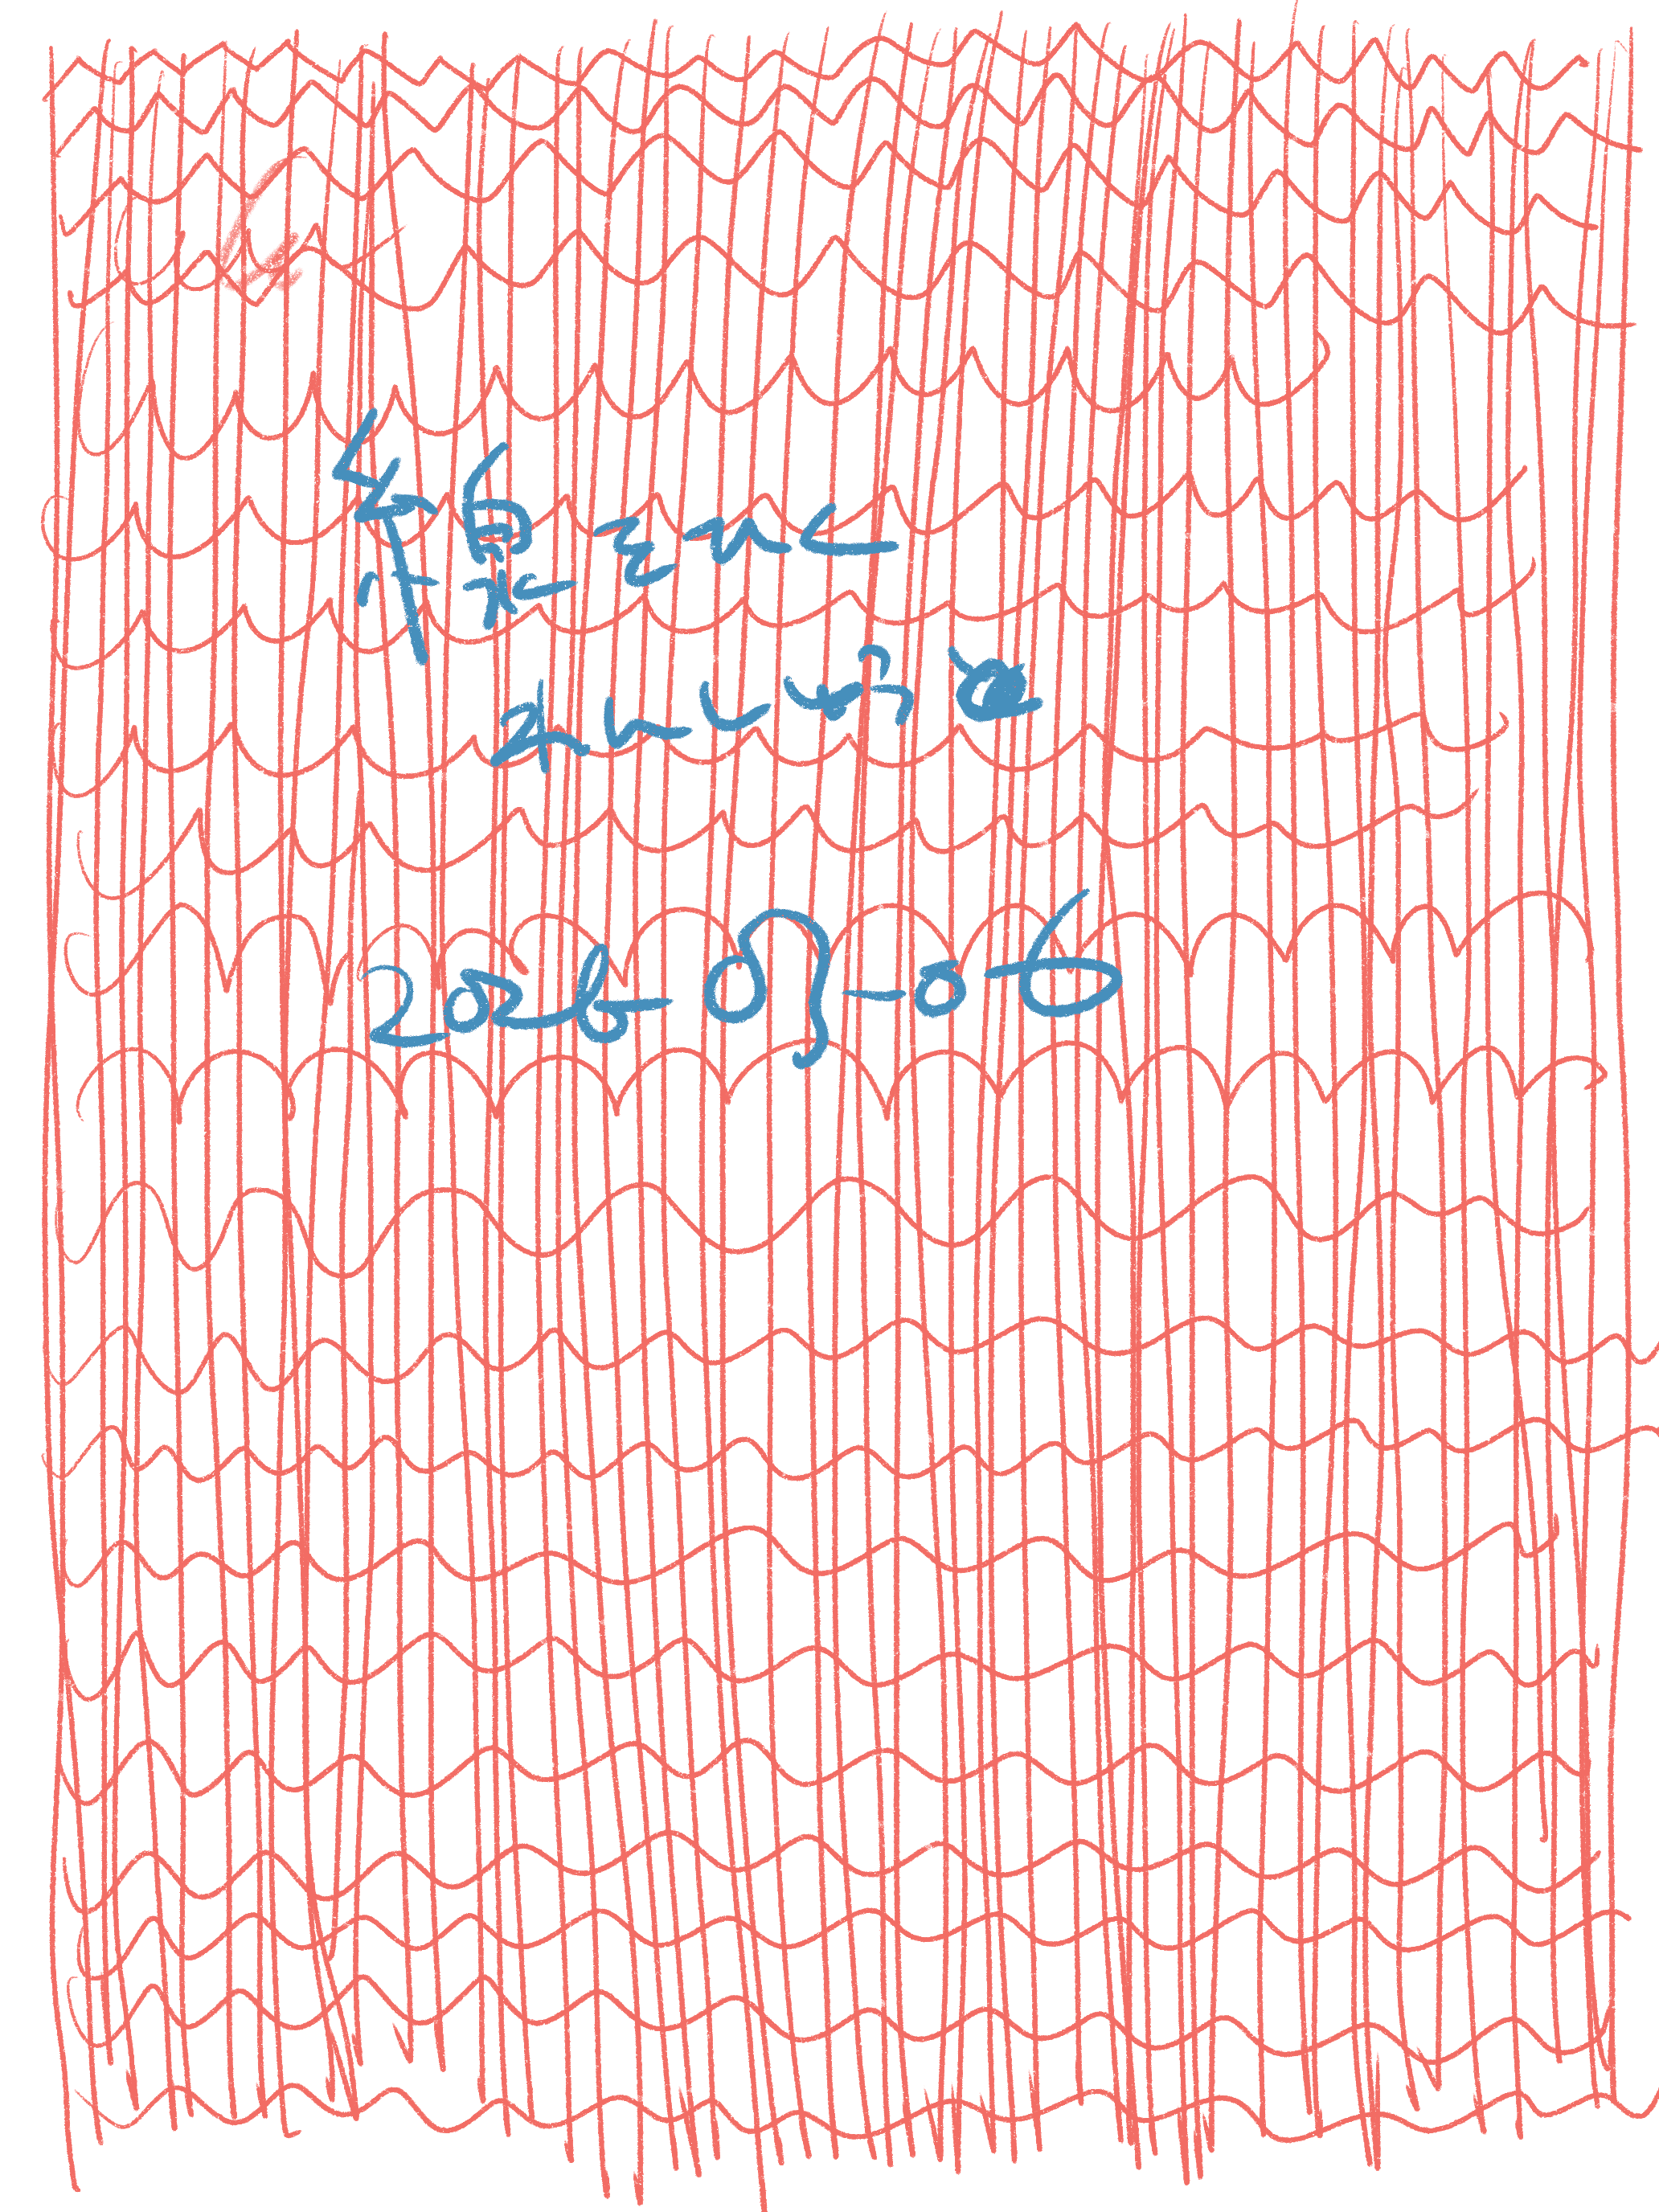 線をひく
れんしゅう
2026-05-06